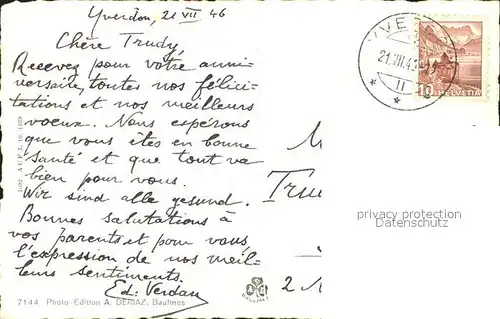 Yverdon, 21 VII 46
Chère Trudy,
Recevez pour votre anni-
versaire, toutes nos félici-
tations et nos meilleurs
voeux. Nous espérons
que vous êtes en bonne
santé et que tout va
bien pour vous.
Wir sind alle gesund.
Bonnes salutations à
vos parents et pour vous
l'expression de nos meil-
leurs sentiments.
Ed. Verdan
7144 Photo-Edition A. DERIAZ, Baulmes
YVE
21.VII.4
II
10 HELVETIA
Tru
2
privacy protection
Datenschutz